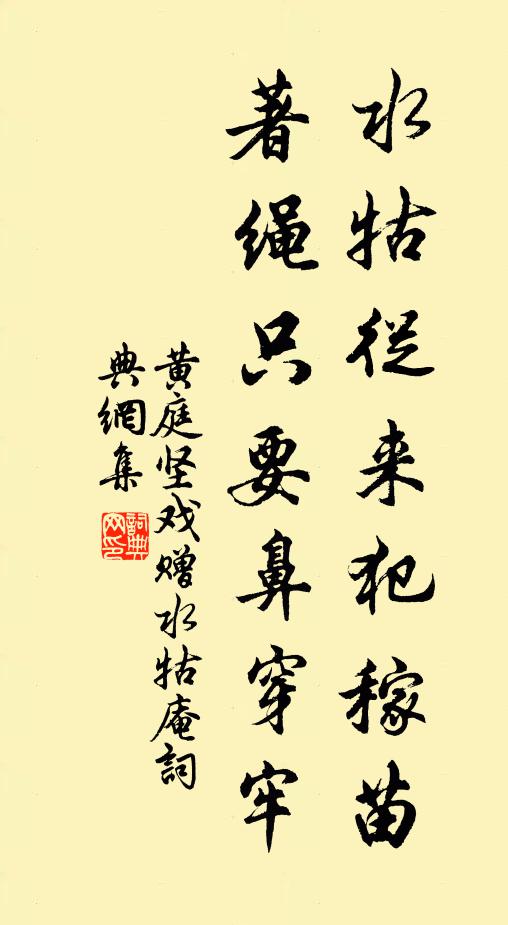 水牯從来犯稼苗
著绳只要鼻穿牢
黄庭坚戏赠水牯庵詞
典網集
詞典
网印